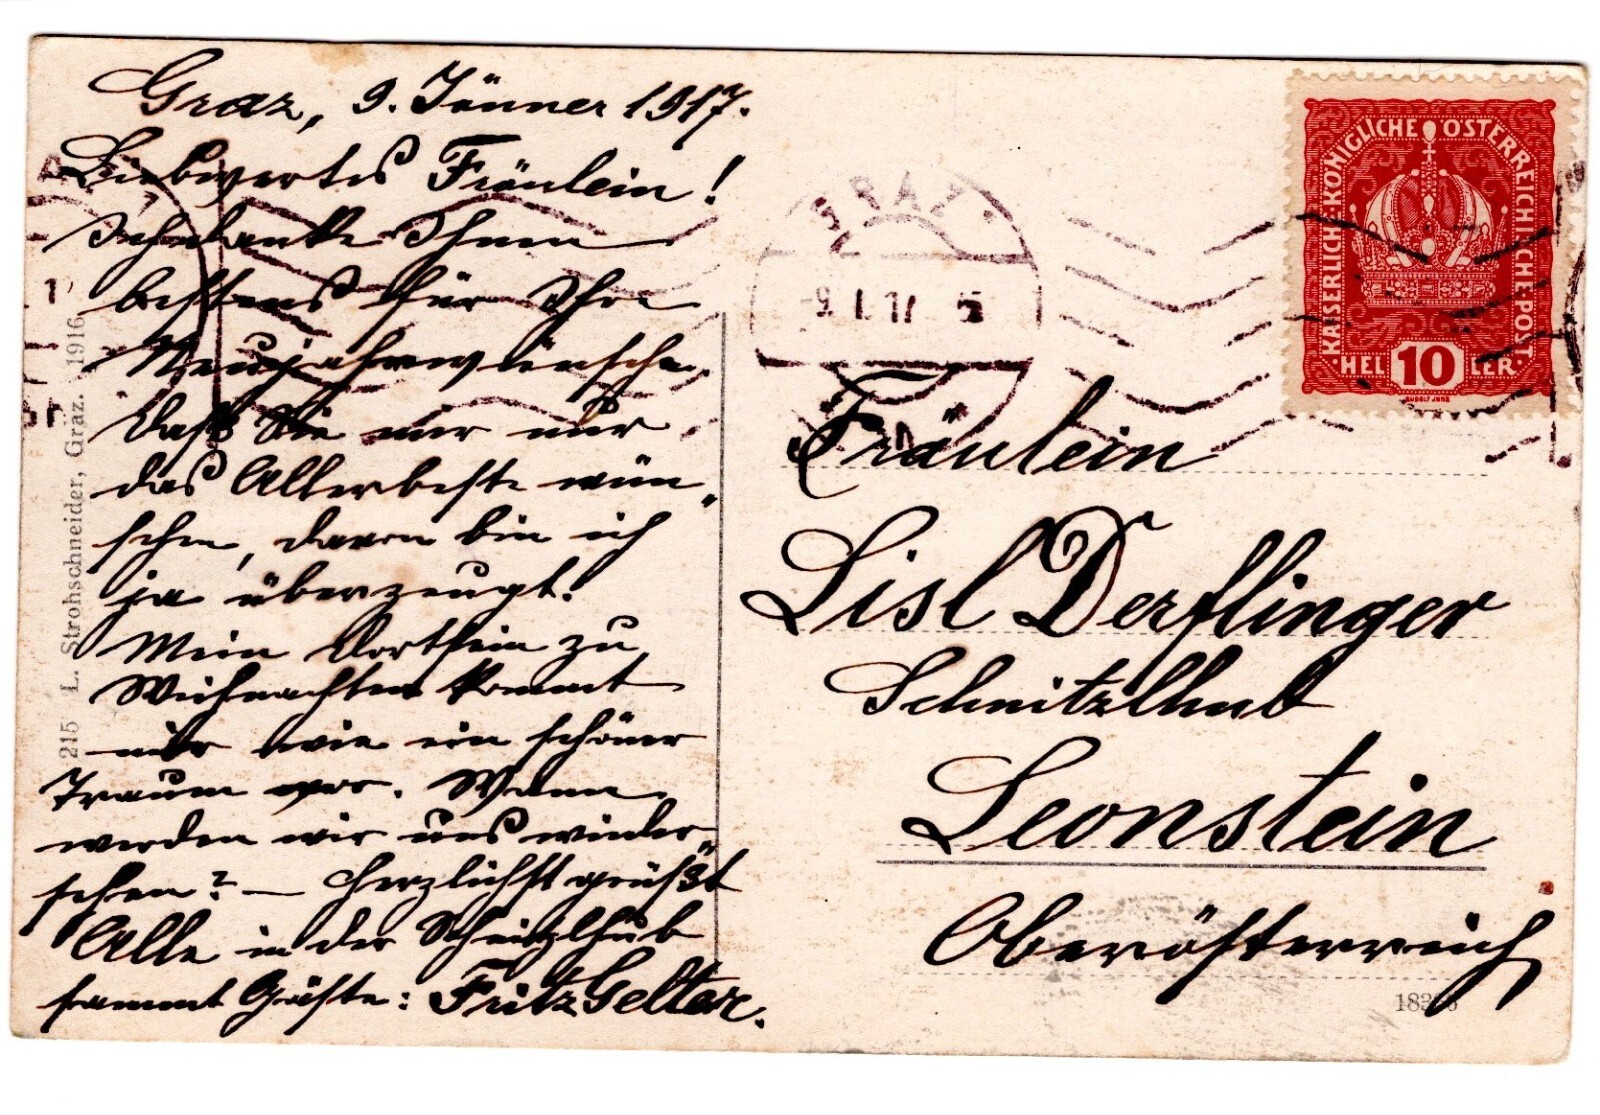 Graz, 9. Jänner 1917.
Liebwertes Fräulein!
Ich danke Ihnen
bestens für Ihre
Neujahrswünsche.
Daß Sie mir nur
das Allerbeste wün„
schen, davon bin ich
ja überzeugt!
Mein Dortsein zu
Weihnachten kommt
mir wie ein schöner
Traum vor. Wann
werden wir uns wieder„
sehen? — Herzlichst grüßt
Alle in der Schnitzlhub
sammt Gäste: Fritz Gelter.
215 L. Strohschneider, Graz. 1916
GRAZ
-9.I.17
KAISERLICHE·KÖNIGLICHE ÖSTERREICHISCHE·POST
HEL 10 LER
RUDOLF JUNK
Fräulein
Lisl Derflinger
Schnitzlhub
Leonstein
Oberösterreich